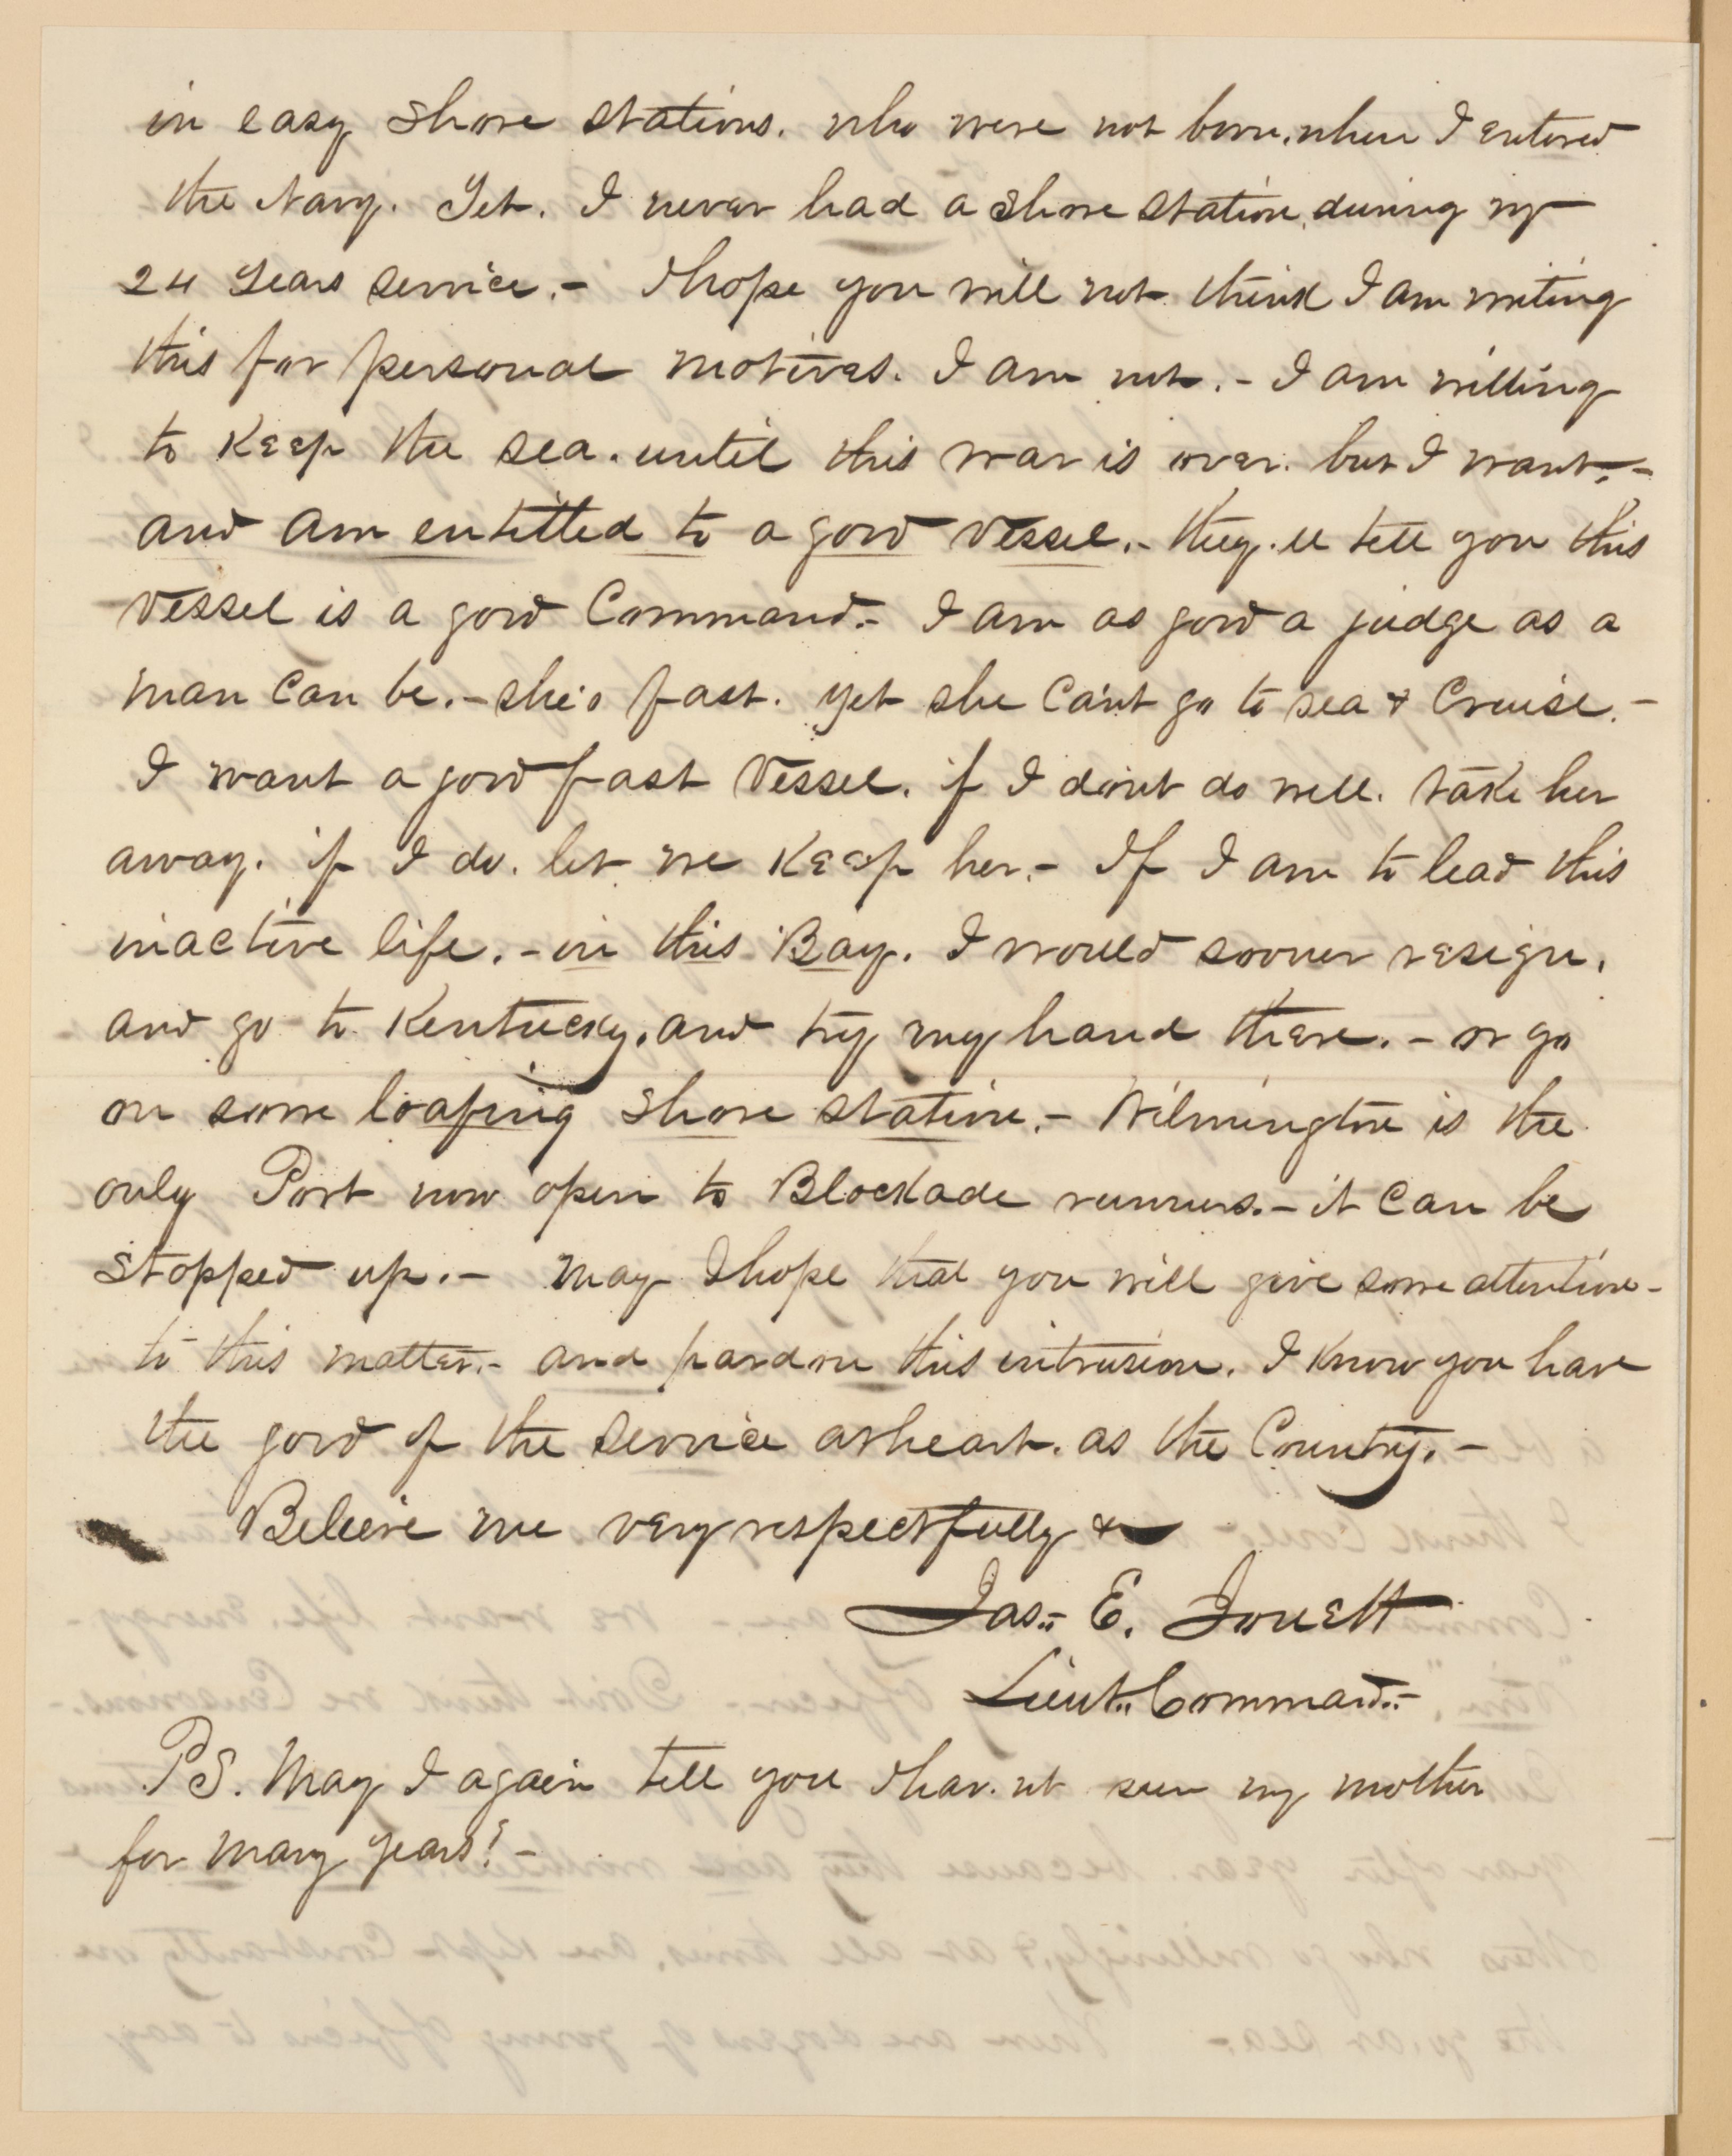 in easy shore stations. who were not born, when I entered
the Navy. Yet. I never had a shore station, during my
24 years service.- I hope you will not think I am writing
this for personal motives. I am not.- I am willing
to keep the sea. until this war is over. but I want,-
and am entitled to a good vessel.- they.ll tell you this
vessel is a good Command.- I am as good a judge as a
man can be.- she's fast. yet she can't go to sea & Cruise.-
I want a good fast vessel. if I don't do well. take her
away. if I do. let me keep her.- If I am to lead this
inactive life.- in this Bay. I would sooner resign.
and go to Kentucky, and try my hand there.- or go
on some loafing shore station.- Wilmington is the
only Port now open to Blockade runners.- it can be
stopped up.- May I hope that you will give some attention-
to this matter.- and pardon this intrusion. I know you have
the good of the service at heart. as the Country.-
Believe me very respectfully &
Jas.. E. Jouett
Lieut.. Command..-
PS. May I again tell you I hav.nt seen my mother
for many years!-